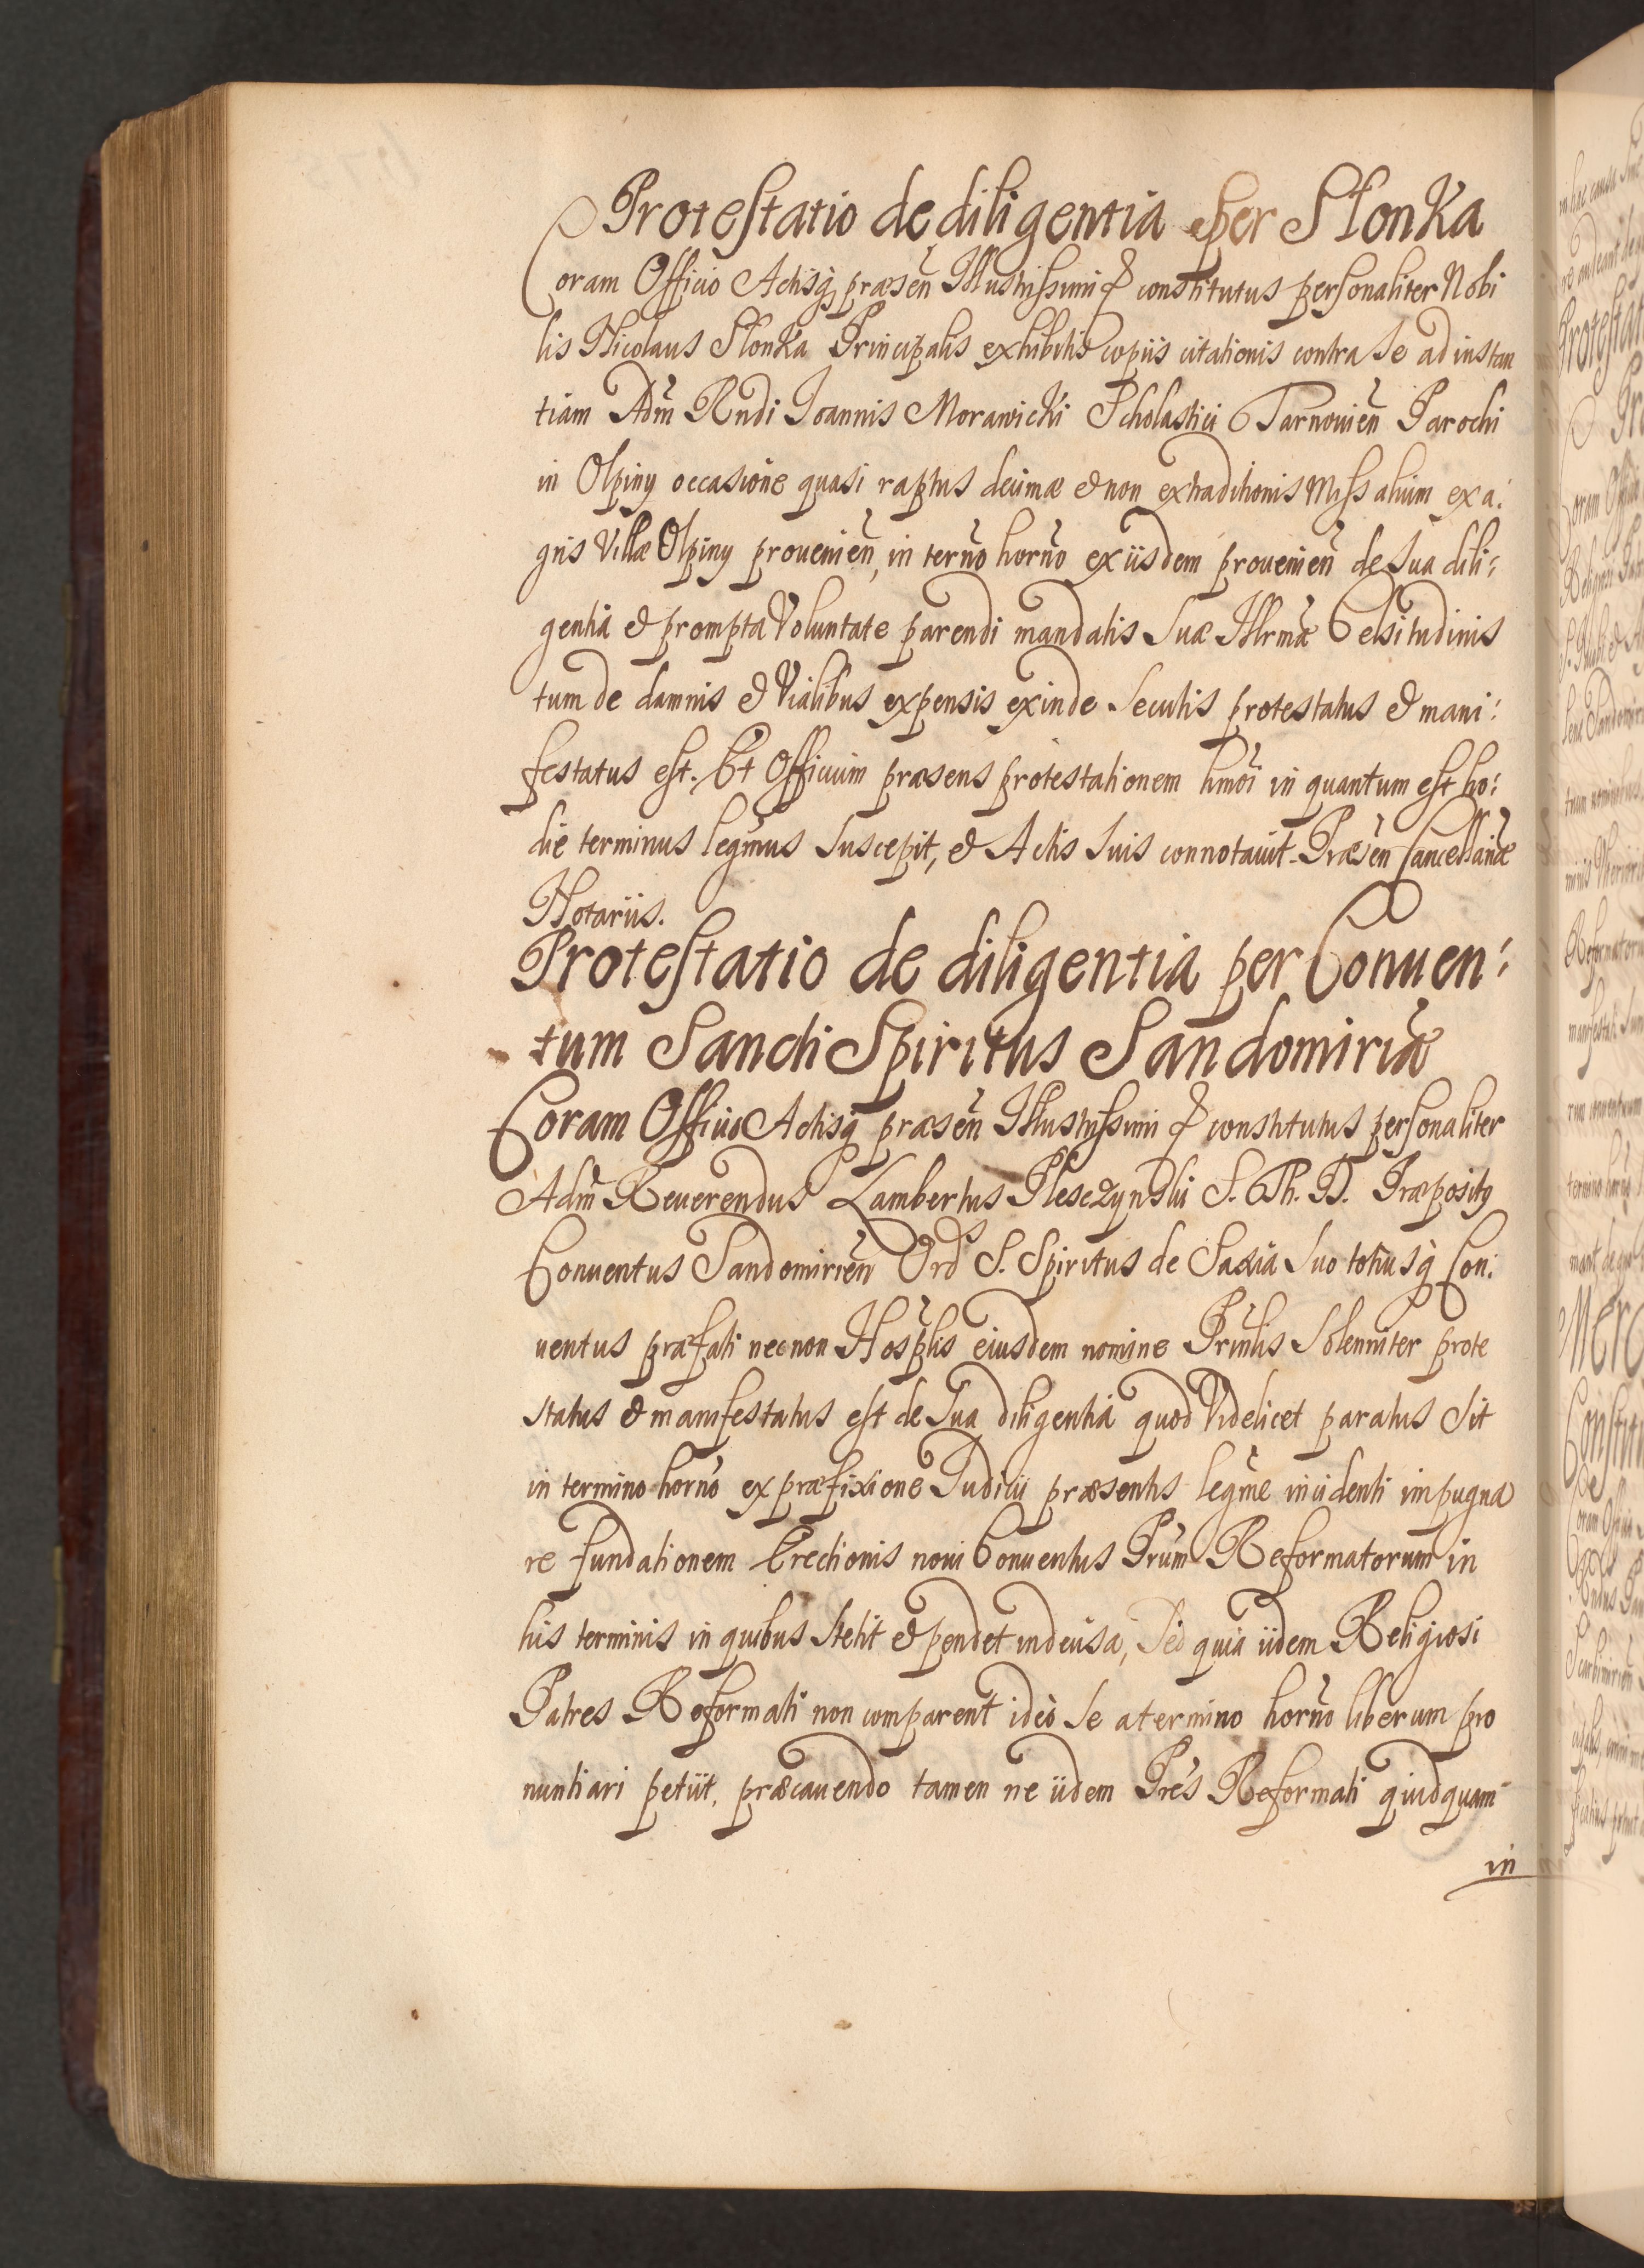 Protestatio de diligentia per Słonka
Coram Officio Actisq̃ præsen̄ Illustrissimi & constitutus personaliter Nobi
lis Nicolaus Słonka Principalis exhibitis copiis citationis contra se ad instan
tiam Adm̄ Rn̄di Joannis Morawicki Scholastici Tarnovien̄ Parochi
in Olpiny occasione quasi raptus decimæ & non extraditionis Missalium ex a:
gris Villæ Olpiny provenien̄, in tern̄o horn̄o ex iisdem provenien̄ de sua dili:
gentia & prompta Voluntate parendi mandatis Suæ Illrmæ Celsitudinis
tum de damnis & Vialibus expensis exinde secutis protestatus & mani:
festatus est. Et Officium præsens protestationem hmōi in quantum est ho:
die terminus legm̄us suscepit, & Actis suis connotavit. Præsen̄ Cancellariæ
Notariis.
Protestatio de diligentia per Conven:
tum Sancti Spiritus Sandomiriæ
Coram Officio Actisq̃ præsen̄ Illustrissimi & constitutus personaliter
Adm̄ Reverendus Lambertus Plesczynski S. Th. D. Præpositꝰ
Conventus Sandomirien̄ Ord S. Spiritus de Saxia suo totiusq̃ Con:
ventus præfati necnon Hosp̄lis eiusdem nomine Prin̄lis Solenniter prote
status & manifestatus est de sua diligentia quod Videlicet paratus sit
in termino horn̄o ex præfixione Judicii præsentis legm̄e incidenti impugna
re fundationem Erectionis novi Conventus Prūm Reformatorum in
his terminis in quibus stetit & pendet indecisa, Sed quia iidem Religiosi
Patres Reformati non comparent ideò se a termino horn̄o liberum pro
nuntiari petiit, præcavendo tamen ne iidem Prēs Reformati quidquam
in